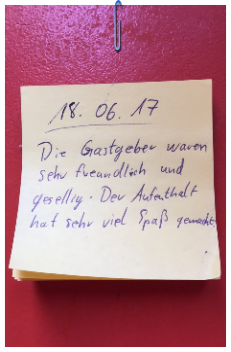 18. 06. 17
Die Gastgeber waren
sehr freundlich und
gesellig. Der Aufenthalt
hat sehr viel Spaß gemacht.